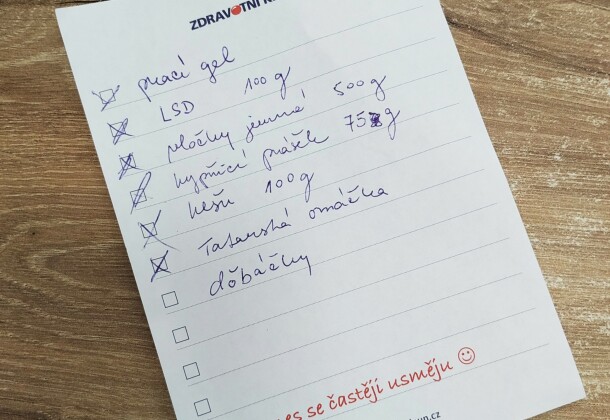 ZDRAVOTNÍ
prací gel
LSD 100g
vločky jemné 500g
kypřící prášek 75g
kešu 100g
Tatarská omáčka
džbáčky
es se častěji usměju
un.cz